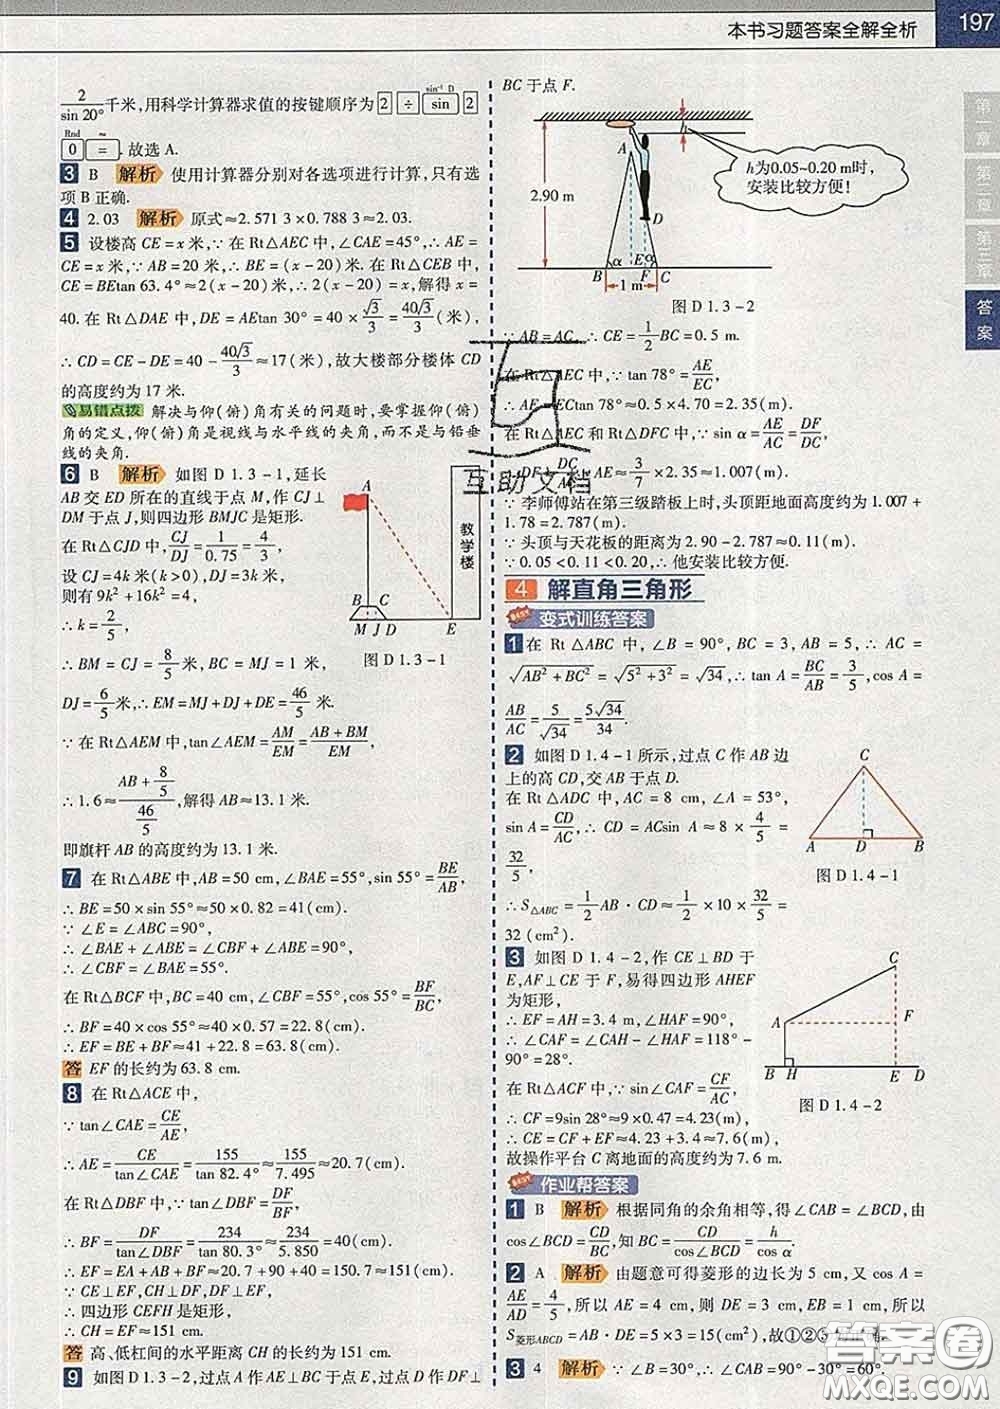 本书习题答案全解全析
197
第一章
第二章
第三章
答案
2/sin 20°千米,用科学计算器求值的按键顺序为 2 ÷ sin 2
sin⁻¹ D
Rnd
0 = . 故选 A.
3 B 解析 使用计算器分别对各选项进行计算,只有选
项 B 正确.
4 2.03 解析 原式≈2.571 3×0.788 3≈2.03.
5 设楼高 CE=x 米,∵在 Rt△AEC 中,∠CAE=45°,∴AE=
CE=x 米,∵AB=20 米,∴BE=(x-20)米.在 Rt△CEB 中,
CE=BEtan 63.4°≈2(x-20)米,∴2(x-20)=x,解得 x=
40.在 Rt△DAE 中,DE=AEtan 30°=40×√3/3=40√3/3(米),
∴CD=CE-DE=40-40√3/3≈17(米),故大楼部分楼体 CD
的高度约为 17 米.
易错点拨 解决与仰(俯)角有关的问题时,要掌握仰(俯)
角的定义,仰(俯)角是视线与水平线的夹角,而不是与铅垂
线的夹角.
6 B 解析 如图 D 1.3-1,延长
AB 交 ED 所在的直线于点 M,作 CJ⊥
DM 于点 J,则四边形 BMJC 是矩形.
在 Rt△CJD 中,CJ/DJ=1/0.75=4/3,
设 CJ=4k 米(k>0),DJ=3k 米,
则有 9k²+16k²=4,
∴k=2/5,
∴BM=CJ=8/5米,BC=MJ=1 米,
DJ=6/5米,∴EM=MJ+DJ+DE=46/5 米.
∵在 Rt△AEM 中,tan∠AEM=AM/EM=(AB+BM)/EM,
∴1.6≈(AB+8/5)/(46/5),解得 AB≈13.1 米.
即旗杆 AB 的高度约为 13.1 米.
A
教学楼
B C
M J D E
图 D 1.3-1
7 在 Rt△ABE 中,AB=50 cm,∠BAE=55°,sin 55°=BE/AB,
∴BE=50×sin 55°≈50×0.82=41(cm).
∵∠E=∠ABC=90°,
∴∠BAE+∠ABE=∠CBF+∠ABE=90°,
∴∠CBF=∠BAE=55°.
在 Rt△BCF 中,BC=40 cm,∠CBF=55°,cos 55°=BF/BC,
∴BF=40×cos 55°≈40×0.57=22.8(cm).
∴EF=BE+BF≈41+22.8=63.8(cm).
答 EF 的长约为 63.8 cm.
8 在 Rt△ACE 中,
∵tan∠CAE=CE/AE,
∴AE=CE/tan∠CAE=155/tan 82.4°≈155/7.495≈20.7(cm).
在 Rt△DBF 中,∵tan∠DBF=DF/BF,
∴BF=DF/tan∠DBF=234/tan 80.3°≈234/5.850=40(cm).
∴EF=EA+AB+BF≈20.7+90+40=150.7≈151(cm).
∵CE⊥EF,CH⊥DF,DF⊥EF,
∴四边形 CEFH 是矩形,
∴CH=EF≈151 cm.
答 高、低杠间的水平距离 CH 的长约为 151 cm.
9 如图 D 1.3-2,过点 A 作 AE⊥BC 于点 E,过点 D 作 DF⊥
BC 于点 F.
A
h
h为0.05~0.20 m时,
安装比较方便!
2.90 m
D
α E α
B F C
1 m
图 D 1.3-2
∵AB=AC,∴CE=1/2BC=0.5 m.
在 Rt△AEC 中,∵tan 78°=AE/EC,
∴AE=ECtan 78°≈0.5×4.70=2.35(m).
在 Rt△AEC 和 Rt△DFC 中,∵sin α=AE/AC=DF/DC,
∴DF=DC/AC·AE≈3/7×2.35≈1.007(m).
∵李师傅站在第三级踏板上时,头顶距地面高度约为 1.007+
1.78=2.787(m).
∵头顶与天花板的距离为 2.90-2.787≈0.11(m).
∵0.05<0.11<0.20,∴他安装比较方便.
4 解直角三角形
变式训练答案
1 在 Rt△ABC 中,∠B=90°,BC=3,AB=5,∴AC=
√(AB²+BC²)=√(5²+3²)=√34,∴tan A=BC/AB=3/5,cos A=
AB/AC=5/√34=5√34/34.
2 如图 D 1.4-1 所示,过点 C 作 AB 边
上的高 CD,交 AB 于点 D.
在 Rt△ADC 中,AC=8 cm,∠A=53°,
sin A=CD/AC,∴CD=ACsin A≈8×4/5=
32/5,
∴S△ABC=1/2AB·CD≈1/2×10×32/5=
32(cm²).
C
A D B
图 D 1.4-1
3 如图 D 1.4-2,作 CE⊥BD 于
E,AF⊥CE 于 F,易得四边形 AHEF
为矩形,
∴EF=AH=3.4 m,∠HAF=90°,
∴∠CAF=∠CAH-∠HAF=118°-
90°=28°.
在 Rt△ACF 中,∵sin∠CAF=CF/AC,
∴CF=9sin 28°≈9×0.47=4.23(m).
∴CE=CF+EF≈4.23+3.4≈7.6(m).
故操作平台 C 离地面的高度约为 7.6 m.
C
A F
B H E D
图 D 1.4-2
作业帮答案
1 B 解析 根据同角的余角相等,得∠CAB=∠BCD,由
cos∠BCD=CD/BC,知 BC=CD/cos∠BCD=h/cos α.
2 A 解析 由题意可得菱形的边长为 5 cm,又 cos A=
AE/AD=4/5,所以 AE=4 cm,则 DE=3 cm,EB=1 cm,所以
S菱形ABCD=AB·DE=5×3=15(cm²),故①②③
3 4 解析 ∵∠B=30°,∴∠CAB=90°-30°=60°.
互助文档
答案圈
MXQE.COM